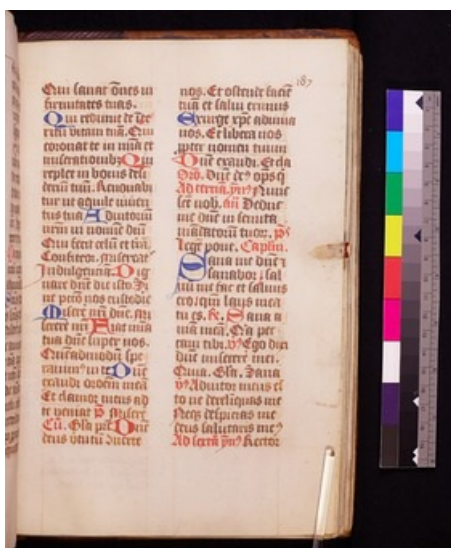 187
Qui sanat o͞nes in
firmitates tuas.
Qui redimit de īte
ritu vitam tuā. Qui
coronat te in mīa et
miserationibꝫ Qui
replet in bonis desi
deriū tuū. Renovabi
tur ut aquile iuven
tus tua Adiutoriū
nrm in nomine dnī
Qui fecit celū et trā.
Confiteor.
Indulgenciā. Dig
nare dnē die isto
ne pctō nos custodire
Misere nrī dnē.
serere nrī Fiat mīa
tua dnē super nos.
Quēadmodū spe
ravimꝰ in te Dnē
exaudi orōem meā
Et clamor meus ad
te veniat
Gla prī Dnē
deus virtutū
nos. Et ostende faciē
tuā et salvi erimus
Exurge xpē adiuva
nos. Et libera nos
ꝓpter nomen tuum
Dnē exaudi. Et cla
Oro. Dnē deꝰ oīps
Ad terciā ynꝰ Nunc
sce nob. an̄ Deduc
me dnē in semita
mādatorū tuor. ps
Legē pone. Caplm.
Sana me dnē ⁊
sanabor sal
vū me fac et salvus
ero: qm̄ laus mea
tu es. R. Sana a
nīa meā. Qa pec
cavi tibi. v Ego dixi
dnē miserere mei.
Quia. Gla. Sana
v Adiutor meus es
to ne derelinquas me
Neqꝫ despicias me
deus salutaris meꝰ
Ad sextā ynꝰ Rector